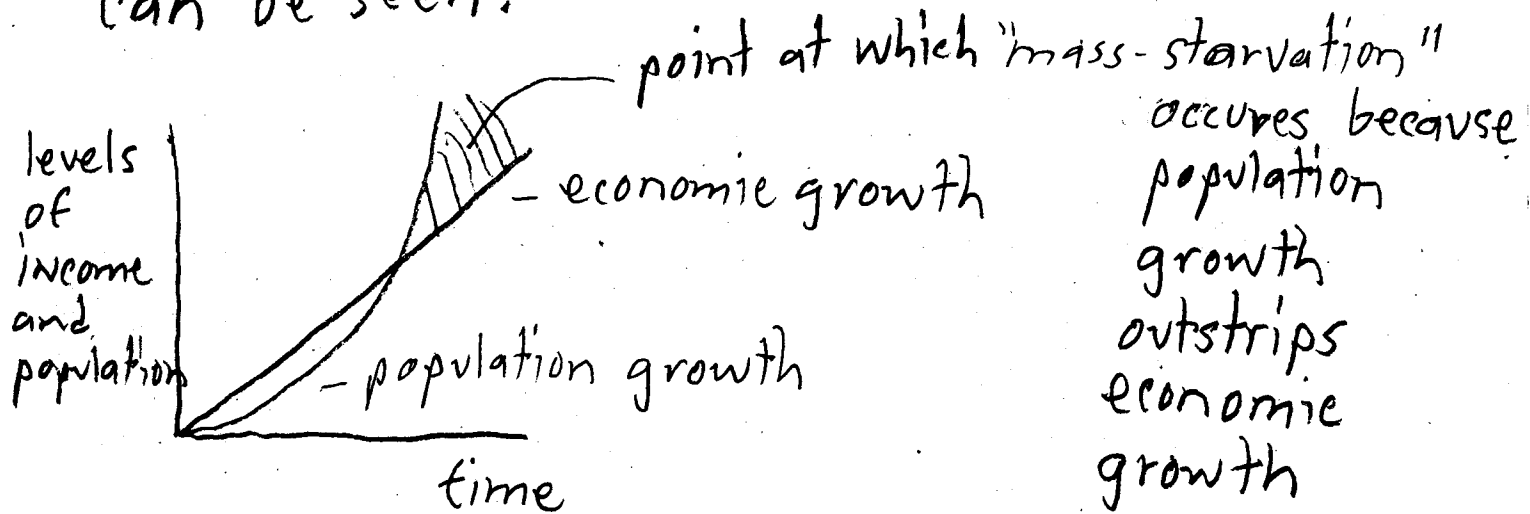 can be seen.
point at which "mass-starvation"
occures because
population
growth
outstrips
economic
growth
levels
of
income
and
population
- economic growth
- population growth
time